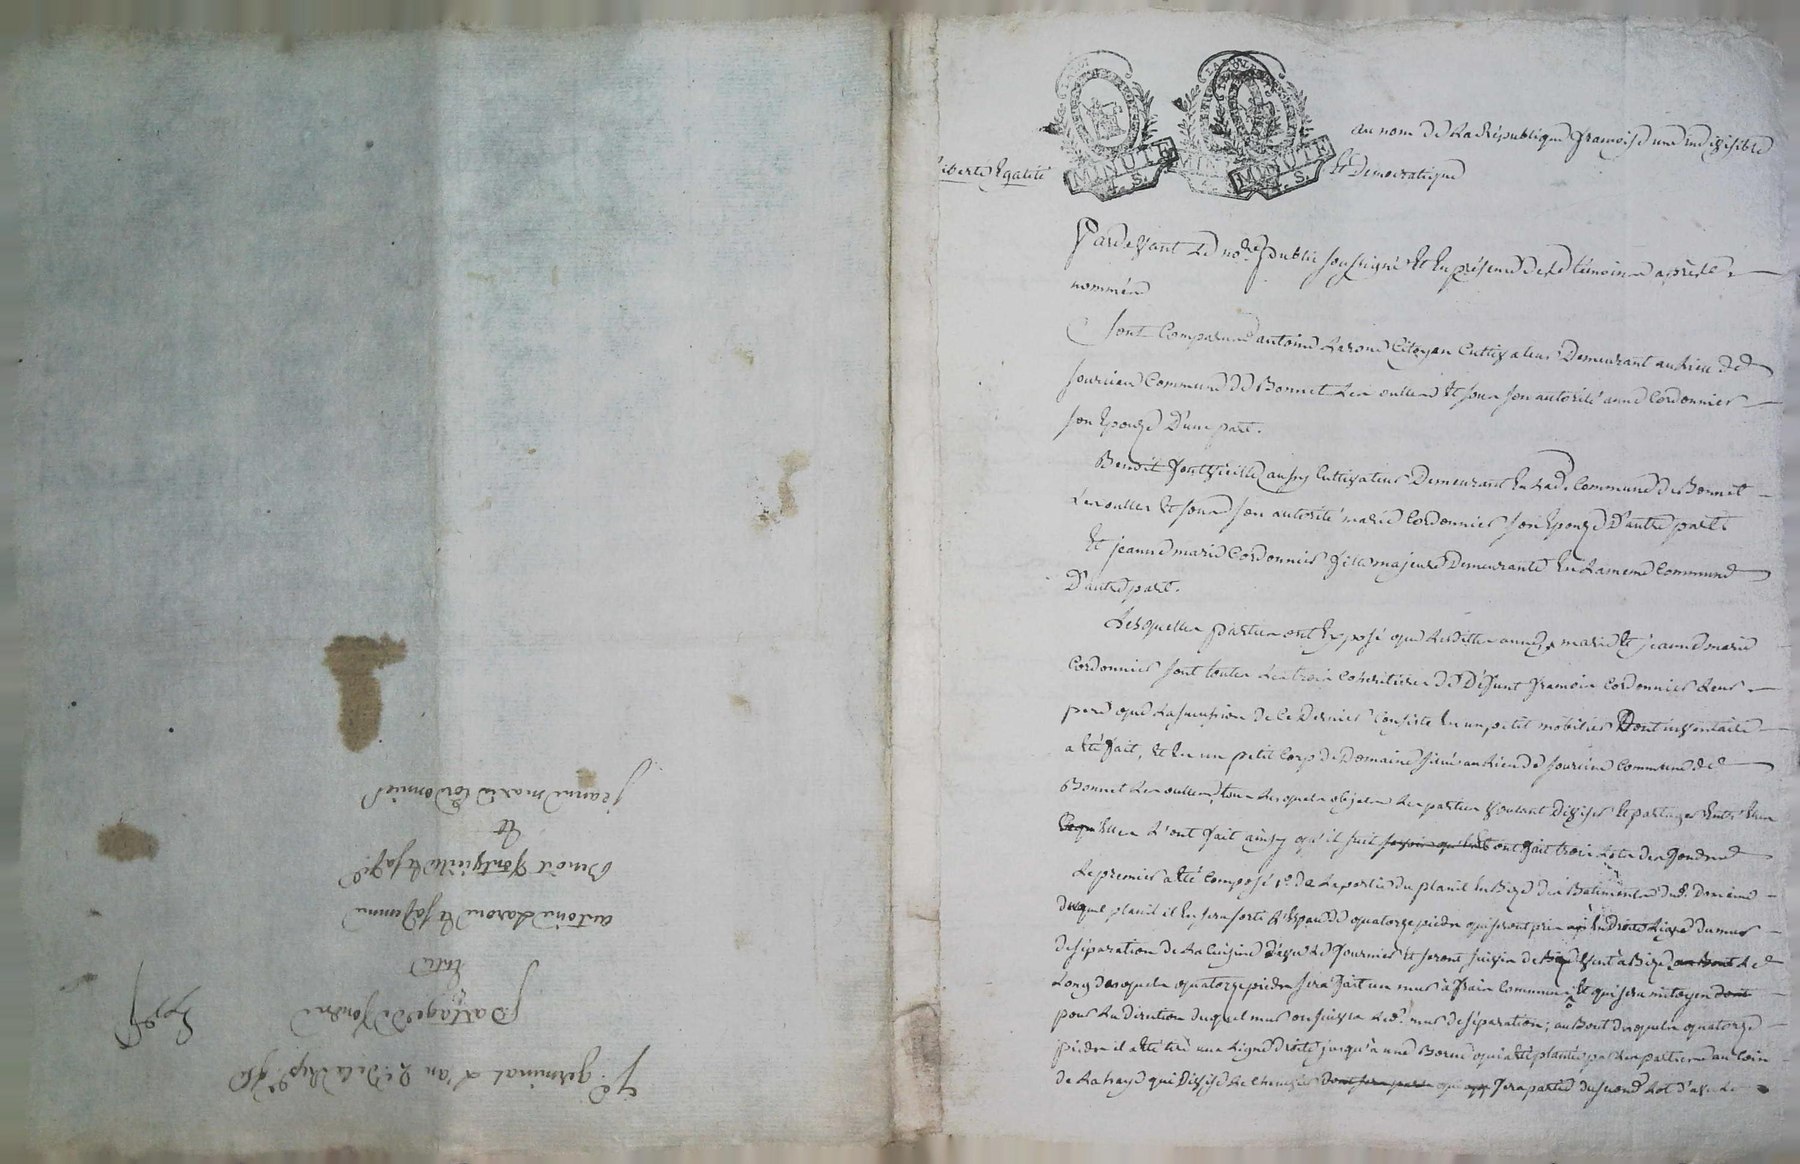 au nom de La République françoise une indivisible
Liberté Egalité
MINUTE MINUTE
4. S. 4. S.
Et Démocratique
Pardevant Le no.re public soussigné Et En présence de de témoins après
nommés
sont Comparus antoine Larone Citoyen Cultivateur Demeurant au Lieu de
Commune de Bonnet Les oulles Et sous son autorité anne Cordonnier
son Epouze D'une part.
Benoit fontvieille aussy Cultivateur Demeurant En La de Commune de Bonnet
Les oulles Et sous son autorité marie Cordonnier son Epouze D'autre part
Et jeanne marie Cordonnier fille majeure Demeurante En La meme Commune
D'autre part.
Lesquelles parties ont Exposé que Lesdittes anne, marie Et jeanne marie
Cordonnier sont toutes Les trois Coheritieres de Défunt françois Cordonnier Leur
pere que La sucession de Ce Dernier Consiste En un petit mobilier Dont inventaire
a Eté fait, Et En un petit Corp de Domaine situé au Lieu de Commune de
Bonnet Les oulles, tous Lesquels objets Les parties voulant Diviser Et partager Entr'Elles
Elles L'ont fait ainsy qu'il suit ont fait trois Lots des fonds
Le premier a Eté Composé 1.o de La partie du plassil En Bize des Batiments du d. Domaine
duquel plassil il En sera sorti L'Espace de quatorze pieds qui seront pris En Droite Ligne du mur
de séparation de La Cuisine Et seront suivis de vent à Bize Le
Long desquels quatorze pieds sera fait un mur à frais Communs Et qui sera mitoyen
pour La direction duquel mur on suivra Led. mur de séparation; au Bout desquels quatorze
pieds il a Eté tiré une Ligne Droite jusqu'à une Borne qui a Eté plantée par Les parties au Coin
de La haye qui Divise Le sera partie du second Lot d'avec Le
germinal L'an 2.e de la Rép.
Partage de fonds
Entre
antoine Larone Et sa femme
Benoit fontvieille Et sa fe
Et
Jeanne marie Cordonnier